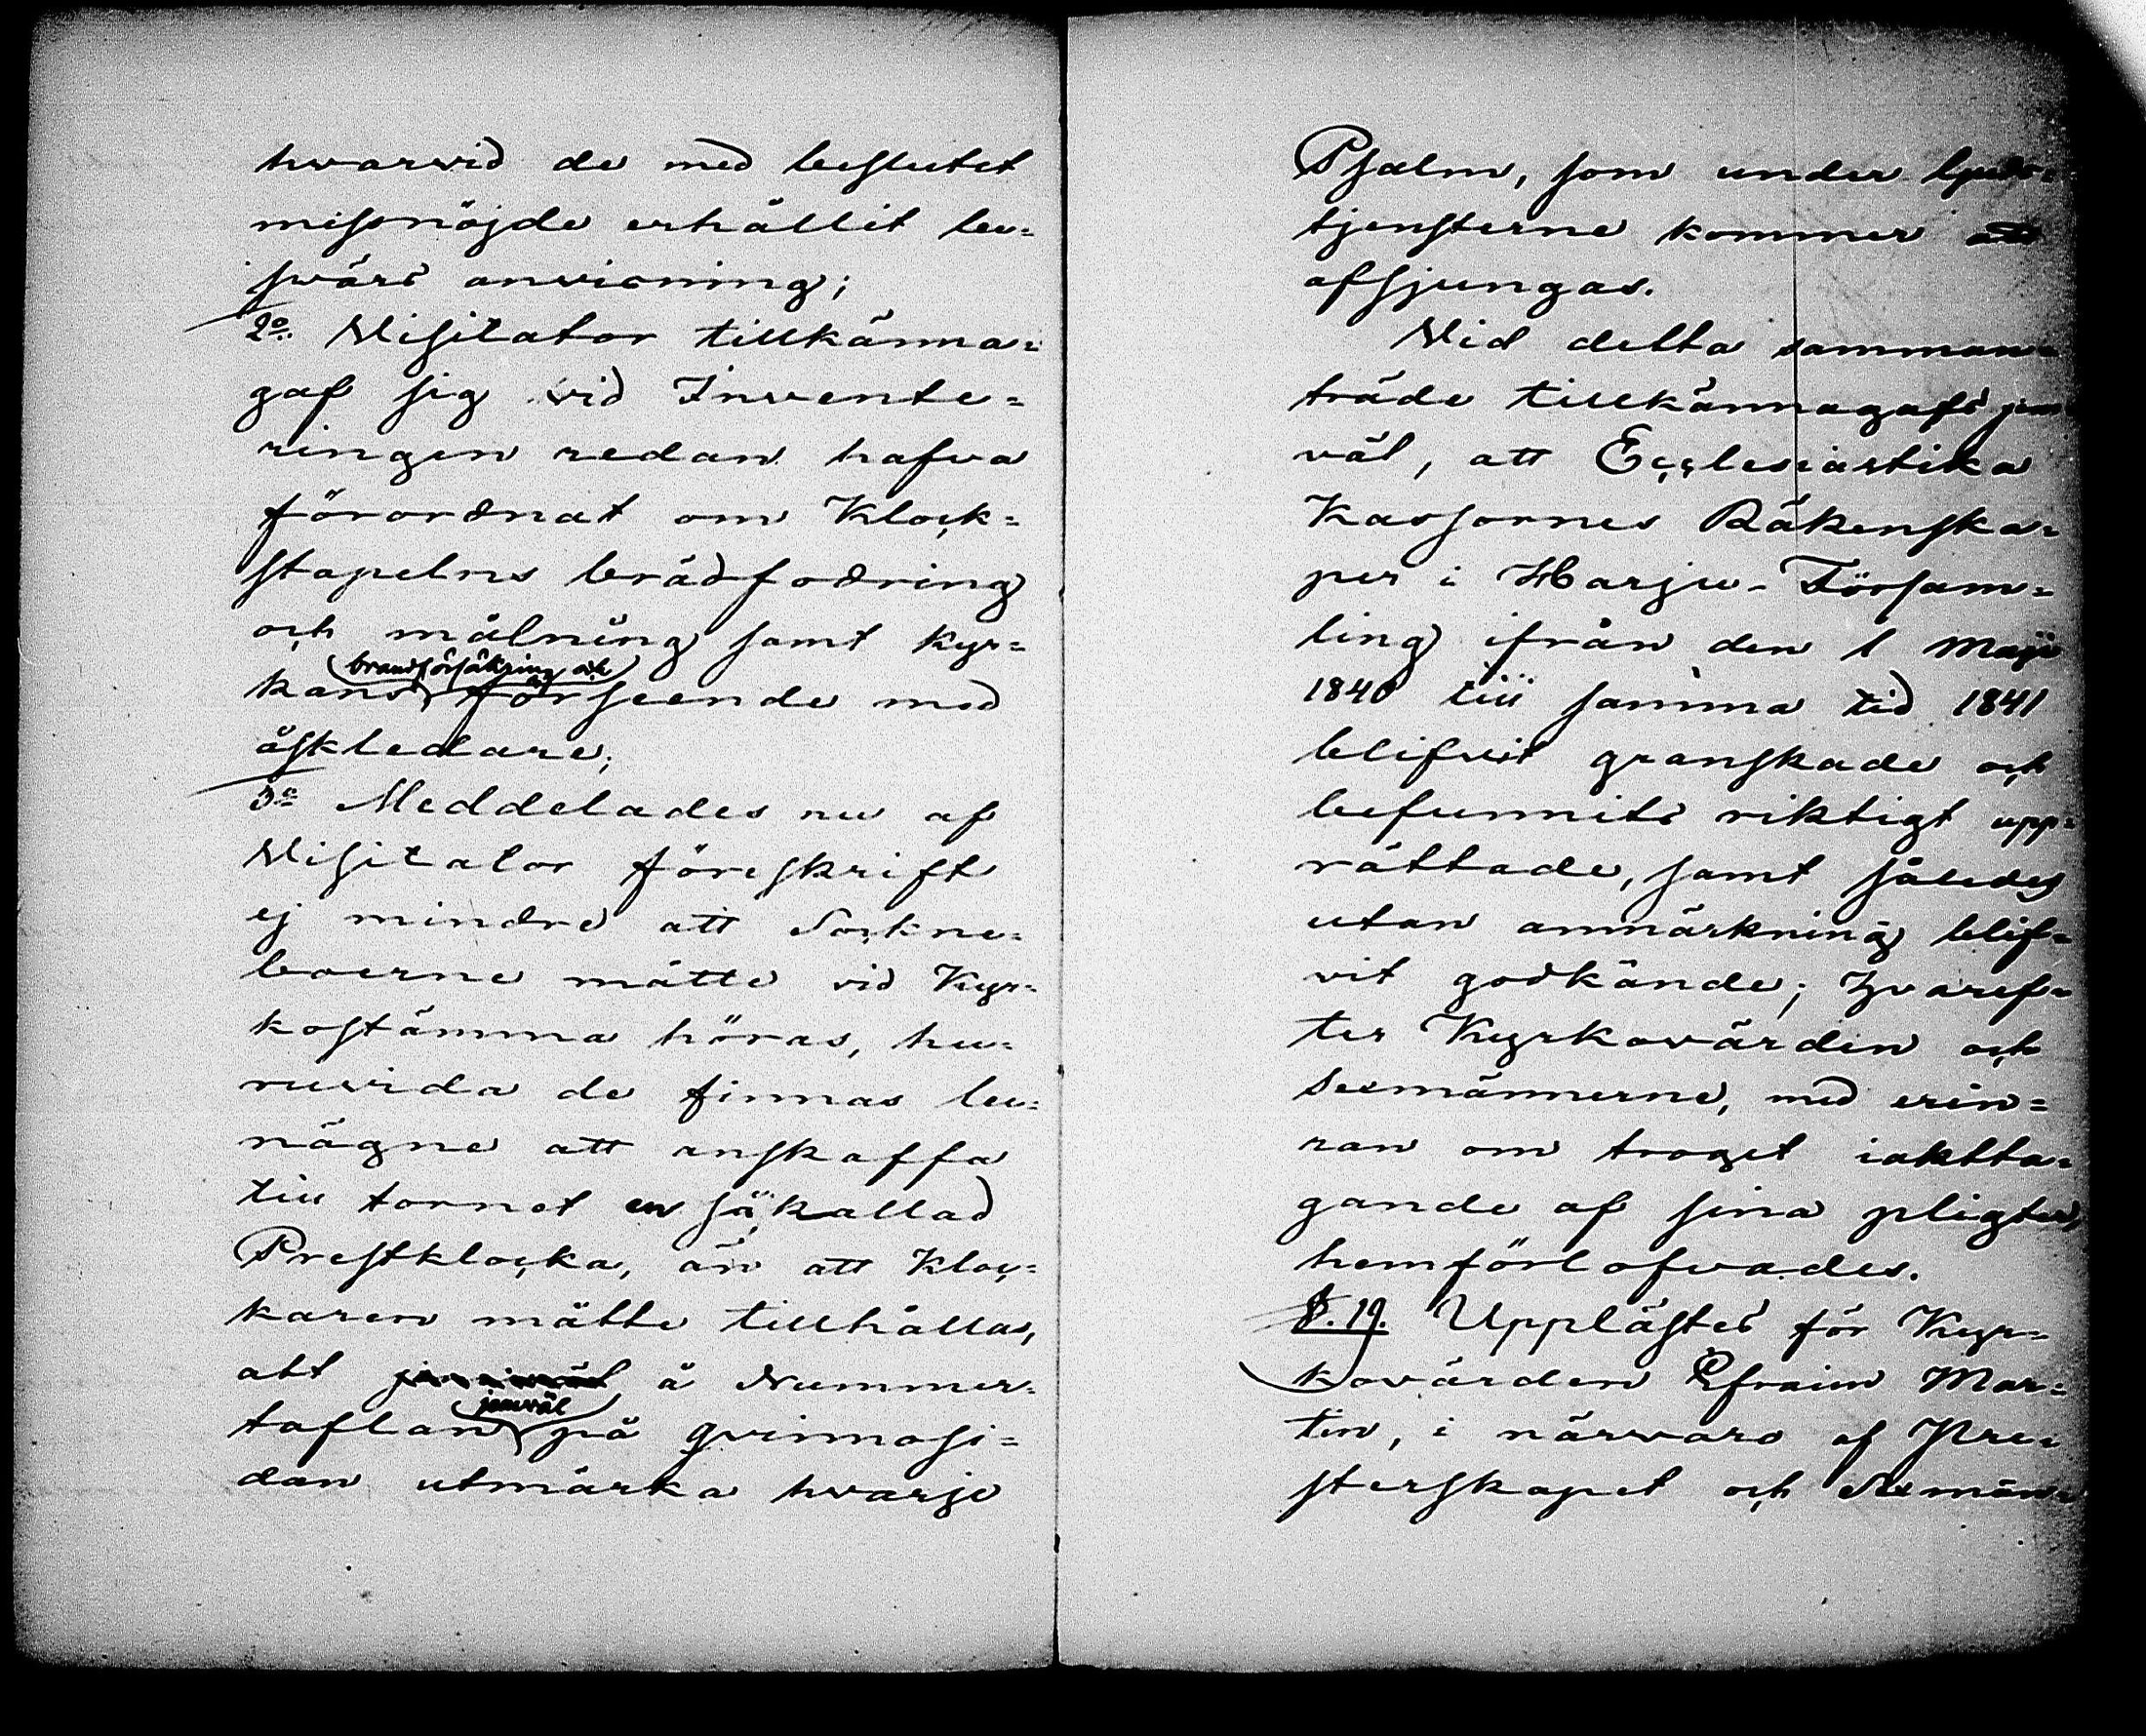 hvarvid de med beslutet
missnöjde erhållit be=
svärs anvisning;
2o. Visitator tillkänna=
gaf sig vid Invente=
ringen redan hafva
förordnat om Klock=
stapelns brädfodring
och målning samt Kyr=
brandförsäkring och
kans förseende med
åskledare;
3o Meddelades nu af
Visitator föreskrift
ej mindre att Sockne=
boerne måtte vid Kyr=
kostämma höras, hu=
ruvida de finnas be=
nägne att anskaffa
till tornet en såkallad
Prestklocka, än att Kloc=
karen måtte tillhållas,
att å Nummer=
jemväl
taflan på qvinnosi=
dan utmärka hvarje
Psalm, som under
tjensterne kommer att
afsjungas.
Vid detta samman=
träde tillkännagafs jem
väl, att Ecclesiastika
Kassornes Räkenska=
per i Harju-Försam=
ling ifrån den 1 Maji
1840 till samma tid 1841
blifvit granskade och
befunnits riktigt upp=
rättade, samt således
utan anmärkning blif=
vit godkände; hvaref=
ter Kyrkovärden och
sexmännerne, med erin=
ran om troget iaktta=
gande af sina pligter,
hemförlofvades.
§. 19. Upplästes för Kyr=
kovärden Efraim Mar=
tin, i närvaro af Pre=
sterskapet och Sexmän=